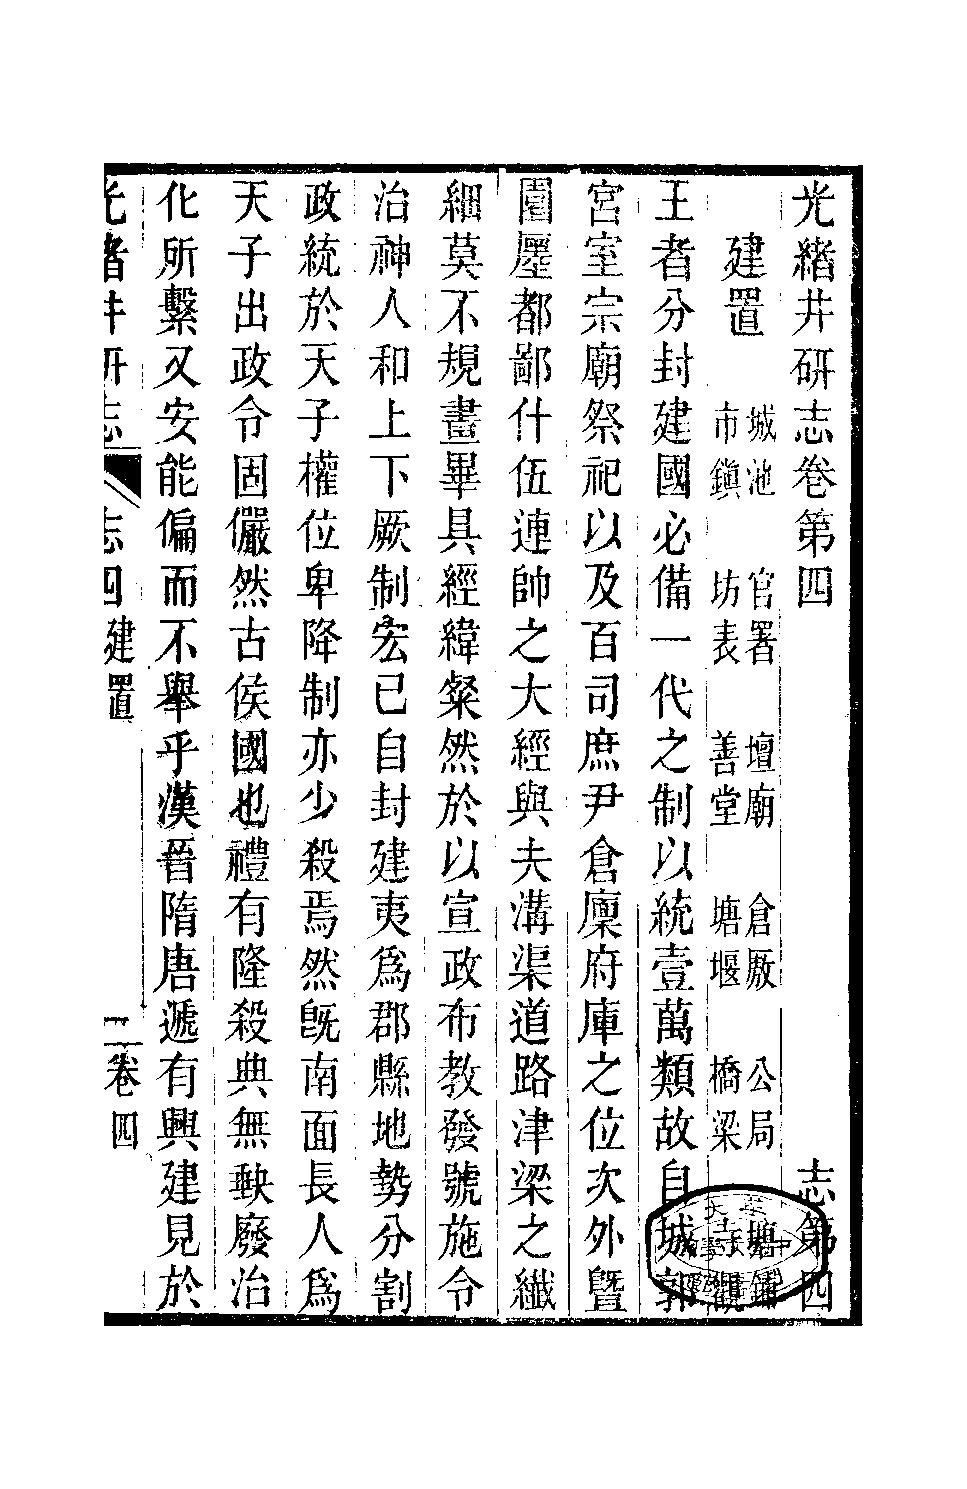 光緒井研志卷第四　志第四
建置　城池　官署　壇廟　倉廒　公局　塘鋪
市鎮　坊表　善堂　塘堰　橋梁　寺觀
王者分封建國必備一代之制以統壹萬類故自城郭
宮室宗廟祭祀以及百司庶尹倉廩府庫之位次外曁
園廛都鄙什伍連帥之大經與夫溝渠道路津梁之纖
細莫不規畫畢具經緯粲然於以宣政布教發號施令
治神人和上下厥制宏已自封建夷爲郡縣地勢分割
政統於天子權位卑降制亦少殺焉然旣南面長人爲
天子出政令固儼然古侯國也禮有隆殺典無缺廢治
化所繫又安能偏而不舉乎漢晉隋唐遞有興建見於
光緒井研志　志四建置　一　卷四